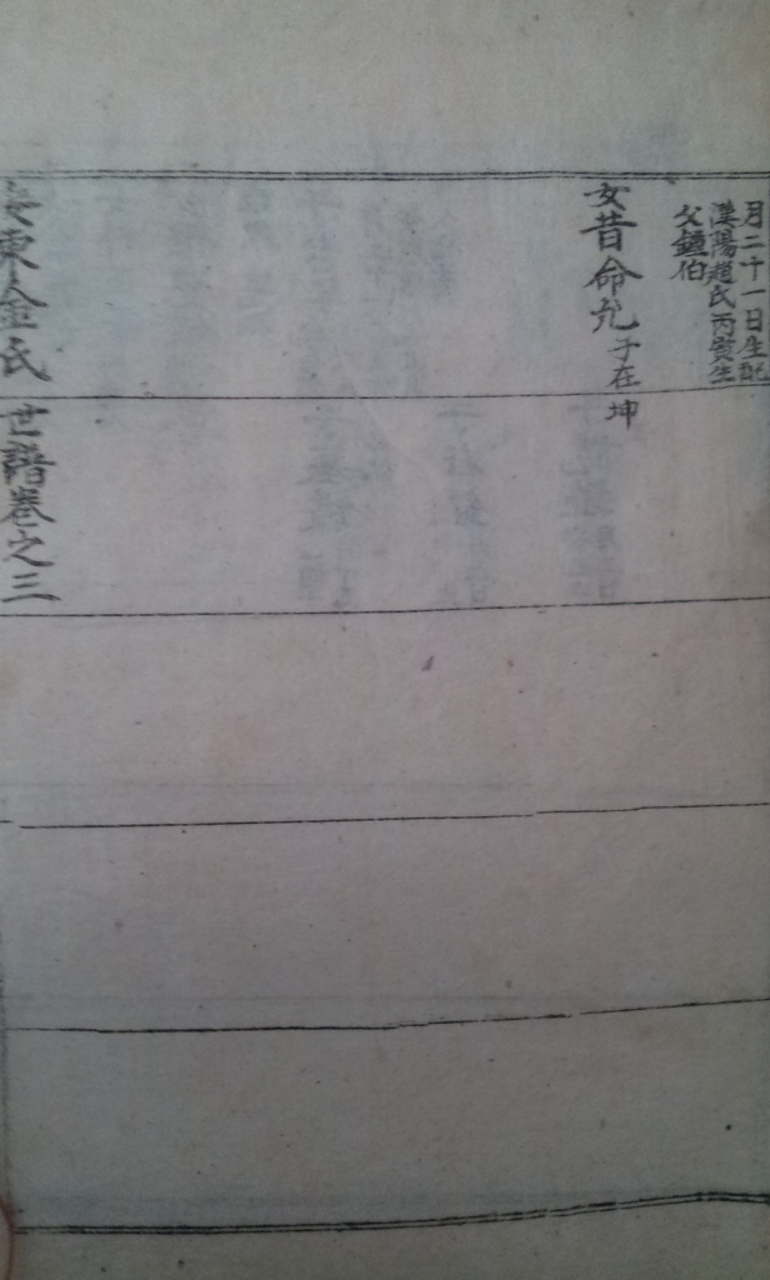 月二十一日生配
漢陽趙氏丙寅生
父鍾伯
女昔命允子在坤
安東金氏世譜卷之三